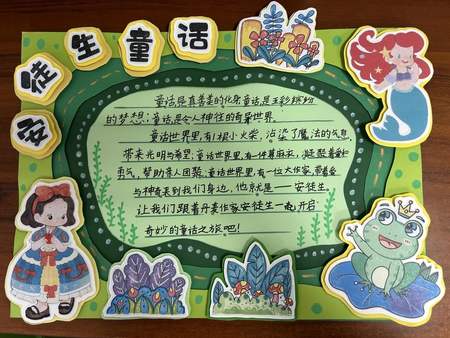 安徒生童话
童话是真善美的化身,童话是五彩缤纷
的梦想;童话是令人神往的奇异世界。
童话世界里,有1根小火柴,沾染了魔法的气息
带来光明与希望;童话世界里,有一件荨麻衣,凝聚着爱和
勇气,帮助亲人团聚,童话世界里,有一位大作家,带着爱
与神奇来到我们身边,他就是——安徒生。
让我们跟着丹麦作家安徒生一起,开启
奇妙的童话之旅吧!